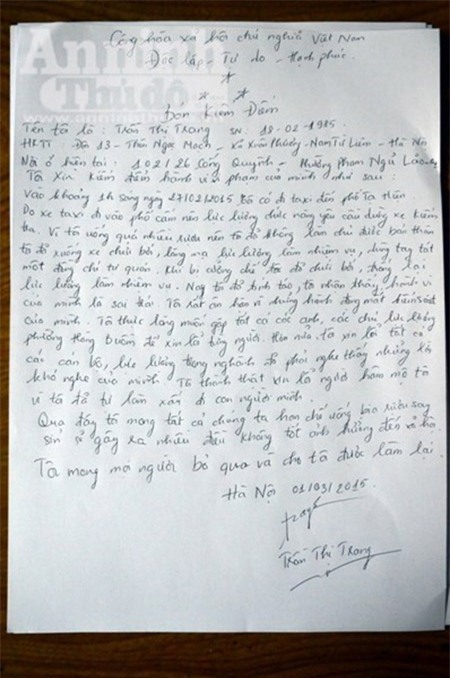 An ninh
Thủ đô
Cộng hòa xã hội chủ nghĩa Việt Nam
Độc lập - Tự do - Hạnh phúc.
Bản Kiểm Điểm
Tên tôi là: Trần Thị Trang sn. 18-02-1985
HKTT: Đội 13 - Thôn Ngọc Mạch - Xã Xuân Phương - Nam Từ Liêm - Hà Nội
Nơi ở hiện tại: 102/26 Cống Quỳnh - Phường Phạm Ngũ Lão
Tôi xin kiểm điểm hành vi vi phạm của mình như sau:
Vào khoảng 1h sáng ngày 27/02/2015 tôi có đi taxi đến phố Tạ Hiện.
Do xe taxi đi vào phố cấm nên lực lượng chức năng yêu cầu dừng xe kiểm
tra. Vì tôi uống quá nhiều rượu nên tôi đã không làm chủ được bản thân
tôi đã xuống xe chửi bới, lăng mạ lực lượng làm nhiệm vụ, dùng tay tát
một đồng chí tự quản. Khi bị cưỡng chế tôi đã chửi bới, chống lại
lực lượng làm nhiệm vụ. Nay tôi đã tỉnh táo, tôi nhận thấy hành vi
của mình là sai trái. Tôi rất ân hận vì những hành động mất kiểm soát
của mình. Tôi thực lòng muốn gặp tất cả các anh, các chú lực lượng
phường Hàng Buồm để xin lỗi từng người. Hơn nữa tôi xin lỗi tất cả
các cán bộ, lực lượng trong nghành đã phải nghe thấy những lời
khó nghe của mình. Tôi thành thật xin lỗi người hâm mộ tôi
vì tôi đã tự làm xấu đi con người mình.
Qua đấy tôi mong tất cả chúng ta hạn chế uống bia rượu say
sỉn sẽ gây ra nhiều điều không tốt ảnh hưởng đến xã hội.
Tôi mong mọi người bỏ qua và cho tôi được làm lại.
Hà Nội 01/03/2015
Trang
Trần Thị Trang